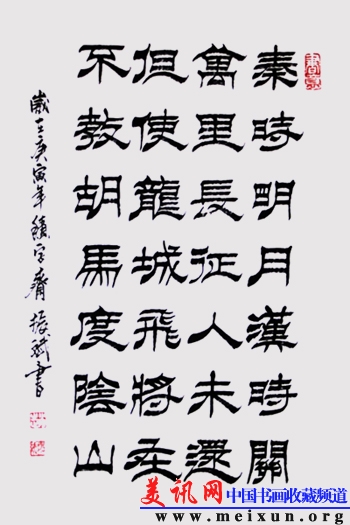 秦時明月漢時關
萬里長征人未還
但使龍城飛將在
不教胡馬度陰山
歲在庚寅年鎮宇齋振斌書
美讯网
中国书画收藏频道
www.meixun.org